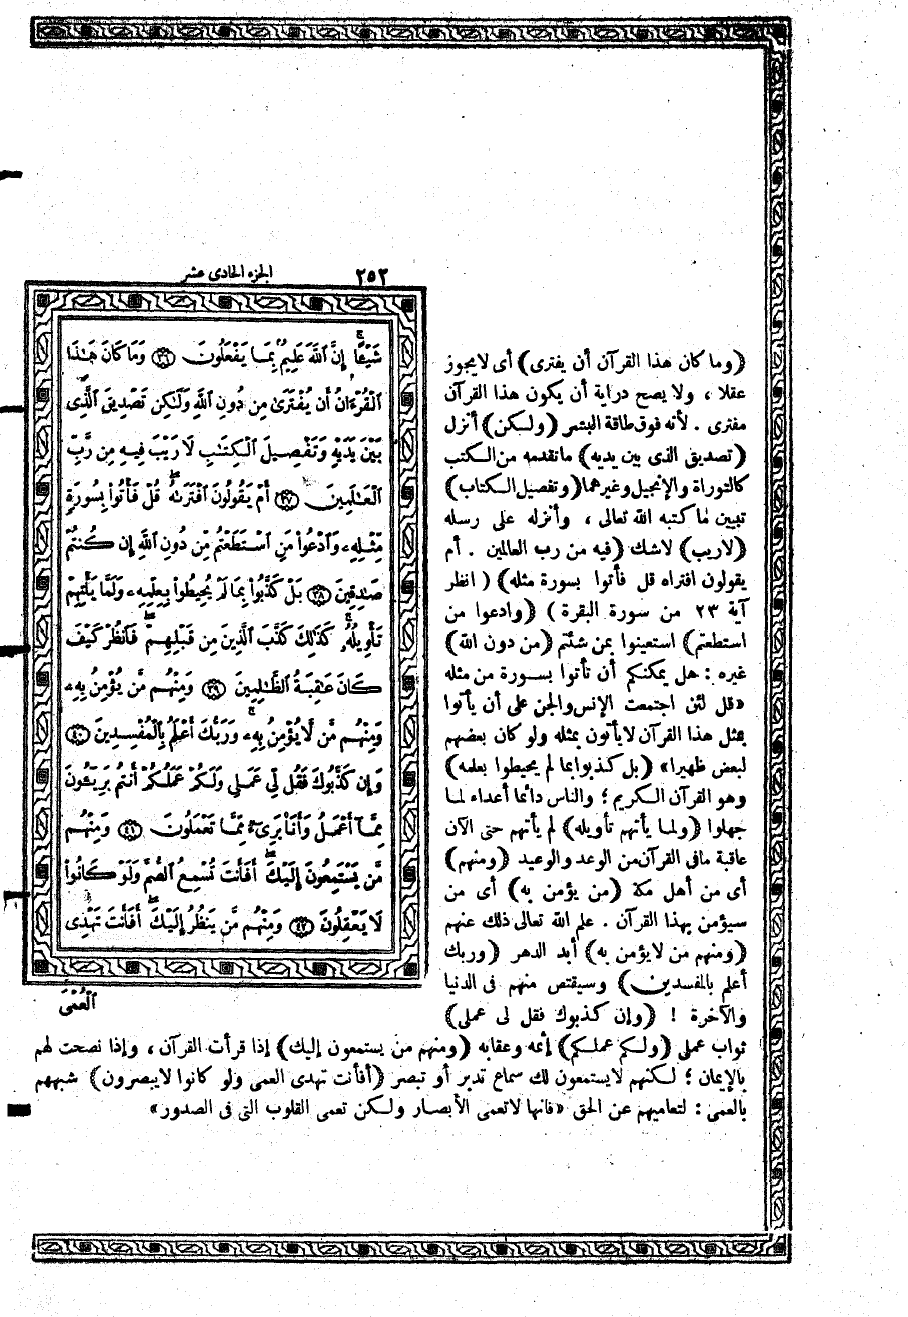 ٢٥٢ الجزء الحادى عشر
شَيْـًٔا إِنَّ ٱللَّهَ عَلِيمٌۢ بِمَا يَفْعَلُونَ ۝٣٦ وَمَا كَانَ هَـٰذَا
ٱلْقُرْءَانُ أَن يُفْتَرَىٰ مِن دُونِ ٱللَّهِ وَلَـٰكِن تَصْدِيقَ ٱلَّذِى
بَيْنَ يَدَيْهِ وَتَفْصِيلَ ٱلْكِتَـٰبِ لَا رَيْبَ فِيهِ مِن رَّبِّ
ٱلْعَـٰلَمِينَ ۝٣٧ أَمْ يَقُولُونَ ٱفْتَرَىٰهُ قُلْ فَأْتُوا۟ بِسُورَةٍ
مِّثْلِهِۦ وَٱدْعُوا۟ مَنِ ٱسْتَطَعْتُم مِّن دُونِ ٱللَّهِ إِن كُنتُمْ
صَـٰدِقِينَ ۝٣٨ بَلْ كَذَّبُوا۟ بِمَا لَمْ يُحِيطُوا۟ بِعِلْمِهِۦ وَلَمَّا يَأْتِهِمْ
تَأْوِيلُهُۥ كَذَٰلِكَ كَذَّبَ ٱلَّذِينَ مِن قَبْلِهِمْ فَٱنظُرْ كَيْفَ
كَانَ عَـٰقِبَةُ ٱلظَّـٰلِمِينَ ۝٣٩ وَمِنْهُم مَّن يُؤْمِنُ بِهِۦ
وَمِنْهُم مَّن لَّا يُؤْمِنُ بِهِۦ وَرَبُّكَ أَعْلَمُ بِٱلْمُفْسِدِينَ ۝٤٠
وَإِن كَذَّبُوكَ فَقُل لِّى عَمَلِى وَلَكُمْ عَمَلُكُمْ أَنتُم بَرِيٓـُٔونَ
مِمَّآ أَعْمَلُ وَأَنَا۠ بَرِىٓءٌ مِّمَّا تَعْمَلُونَ ۝٤١ وَمِنْهُم
مَّن يَسْتَمِعُونَ إِلَيْكَ أَفَأَنتَ تُسْمِعُ ٱلصُّمَّ وَلَوْ كَانُوا۟
لَا يَعْقِلُونَ ۝٤٢ وَمِنْهُم مَّن يَنظُرُ إِلَيْكَ أَفَأَنتَ تَهْدِى
ٱلْعُمْىَ
(وما كان هذا القرآن أن يفترى) أى لايجوز
عقلا ، ولا يصح دراية أن يكون هذا القرآن
مفترى . لأنه فوق طاقة البشر (ولكن) أنزل
(تصديق الذى بين يديه) ماتقدمه من الكتب
كالتوراة والإنجيل وغيرهما (وتفصيل الكتاب)
تبيين ما كتبه الله تعالى ، وأنزله على رسله
(لاريب) لاشك (فيه من رب العالمين . أم
يقولون افتراه قل فأتوا بسورة مثله) (انظر
آية ٢٣ من سورة البقرة) (وادعوا من
استطعتم) استعينوا بمن شئتم (من دون الله)
غيره : هل يمكنكم أن تأتوا بسورة من مثله
«قل لئن اجتمعت الإنس والجن على أن يأتوا
بمثل هذا القرآن لايأتون بمثله ولو كان بعضهم
لبعض ظهيرا» (بل كذبوا بما لم يحيطوا بعلمه)
وهو القرآن الكريم ؛ والناس دائما أعداء لما
جهلوا (ولما يأتهم تأويله) لم يأتهم حتى الآن
عاقبة مافى القرآن من الوعد والوعيد (ومنهم)
أى من أهل مكة (من يؤمن به) أى من
سيؤمن بهذا القرآن . علم الله تعالى ذلك عنهم
(ومنهم من لايؤمن به) أبد الدهر (وربك
أعلم بالمفسدين) وسيقتص منهم فى الدنيا
والآخرة ! (وإن كذبوك فقل لى عملى)
ثواب عملى (ولكم عملكم) إثمه وعقابه (ومنهم من يستمعون إليك) إذا قرأت القرآن ، وإذا نصحت لهم
بالإيمان ؛ لكنهم لايستمعون لك سماع تدبر أو تبصر (أفأنت تهدى العمى ولو كانوا لايبصرون) شبههم
بالعمى : لتعاميهم عن الحق «فإنها لاتعمى الأبصار ولكن تعمى القلوب التى فى الصدور»